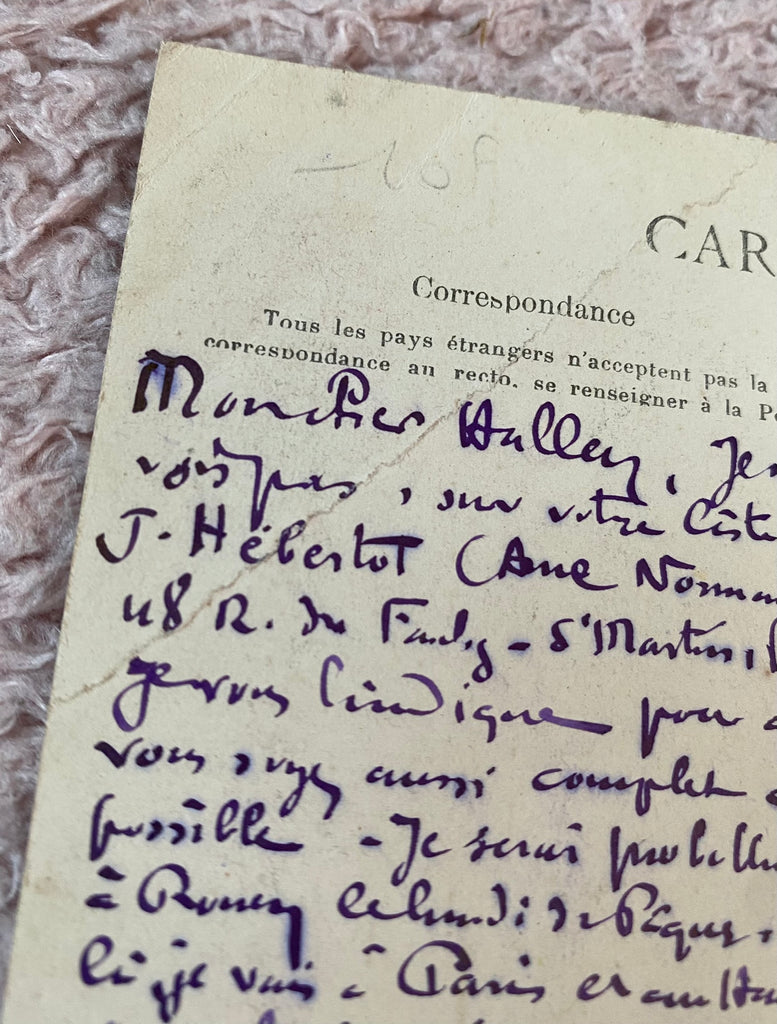 CAR
Correspondance
Tous les pays étrangers n'acceptent pas la
correspondance au recto, se renseigner à la P
Mon cher Halley, Je
vois pas, sur votre liste
J. Hébertot (Ame Norman
48 R. du Faubg - St Martin,
Je vous l'indique pour
vous soyez aussi complet
possible - Je serai probabl
à Rouen le lundi de Pâques,
là, je vais à Paris et au Ha